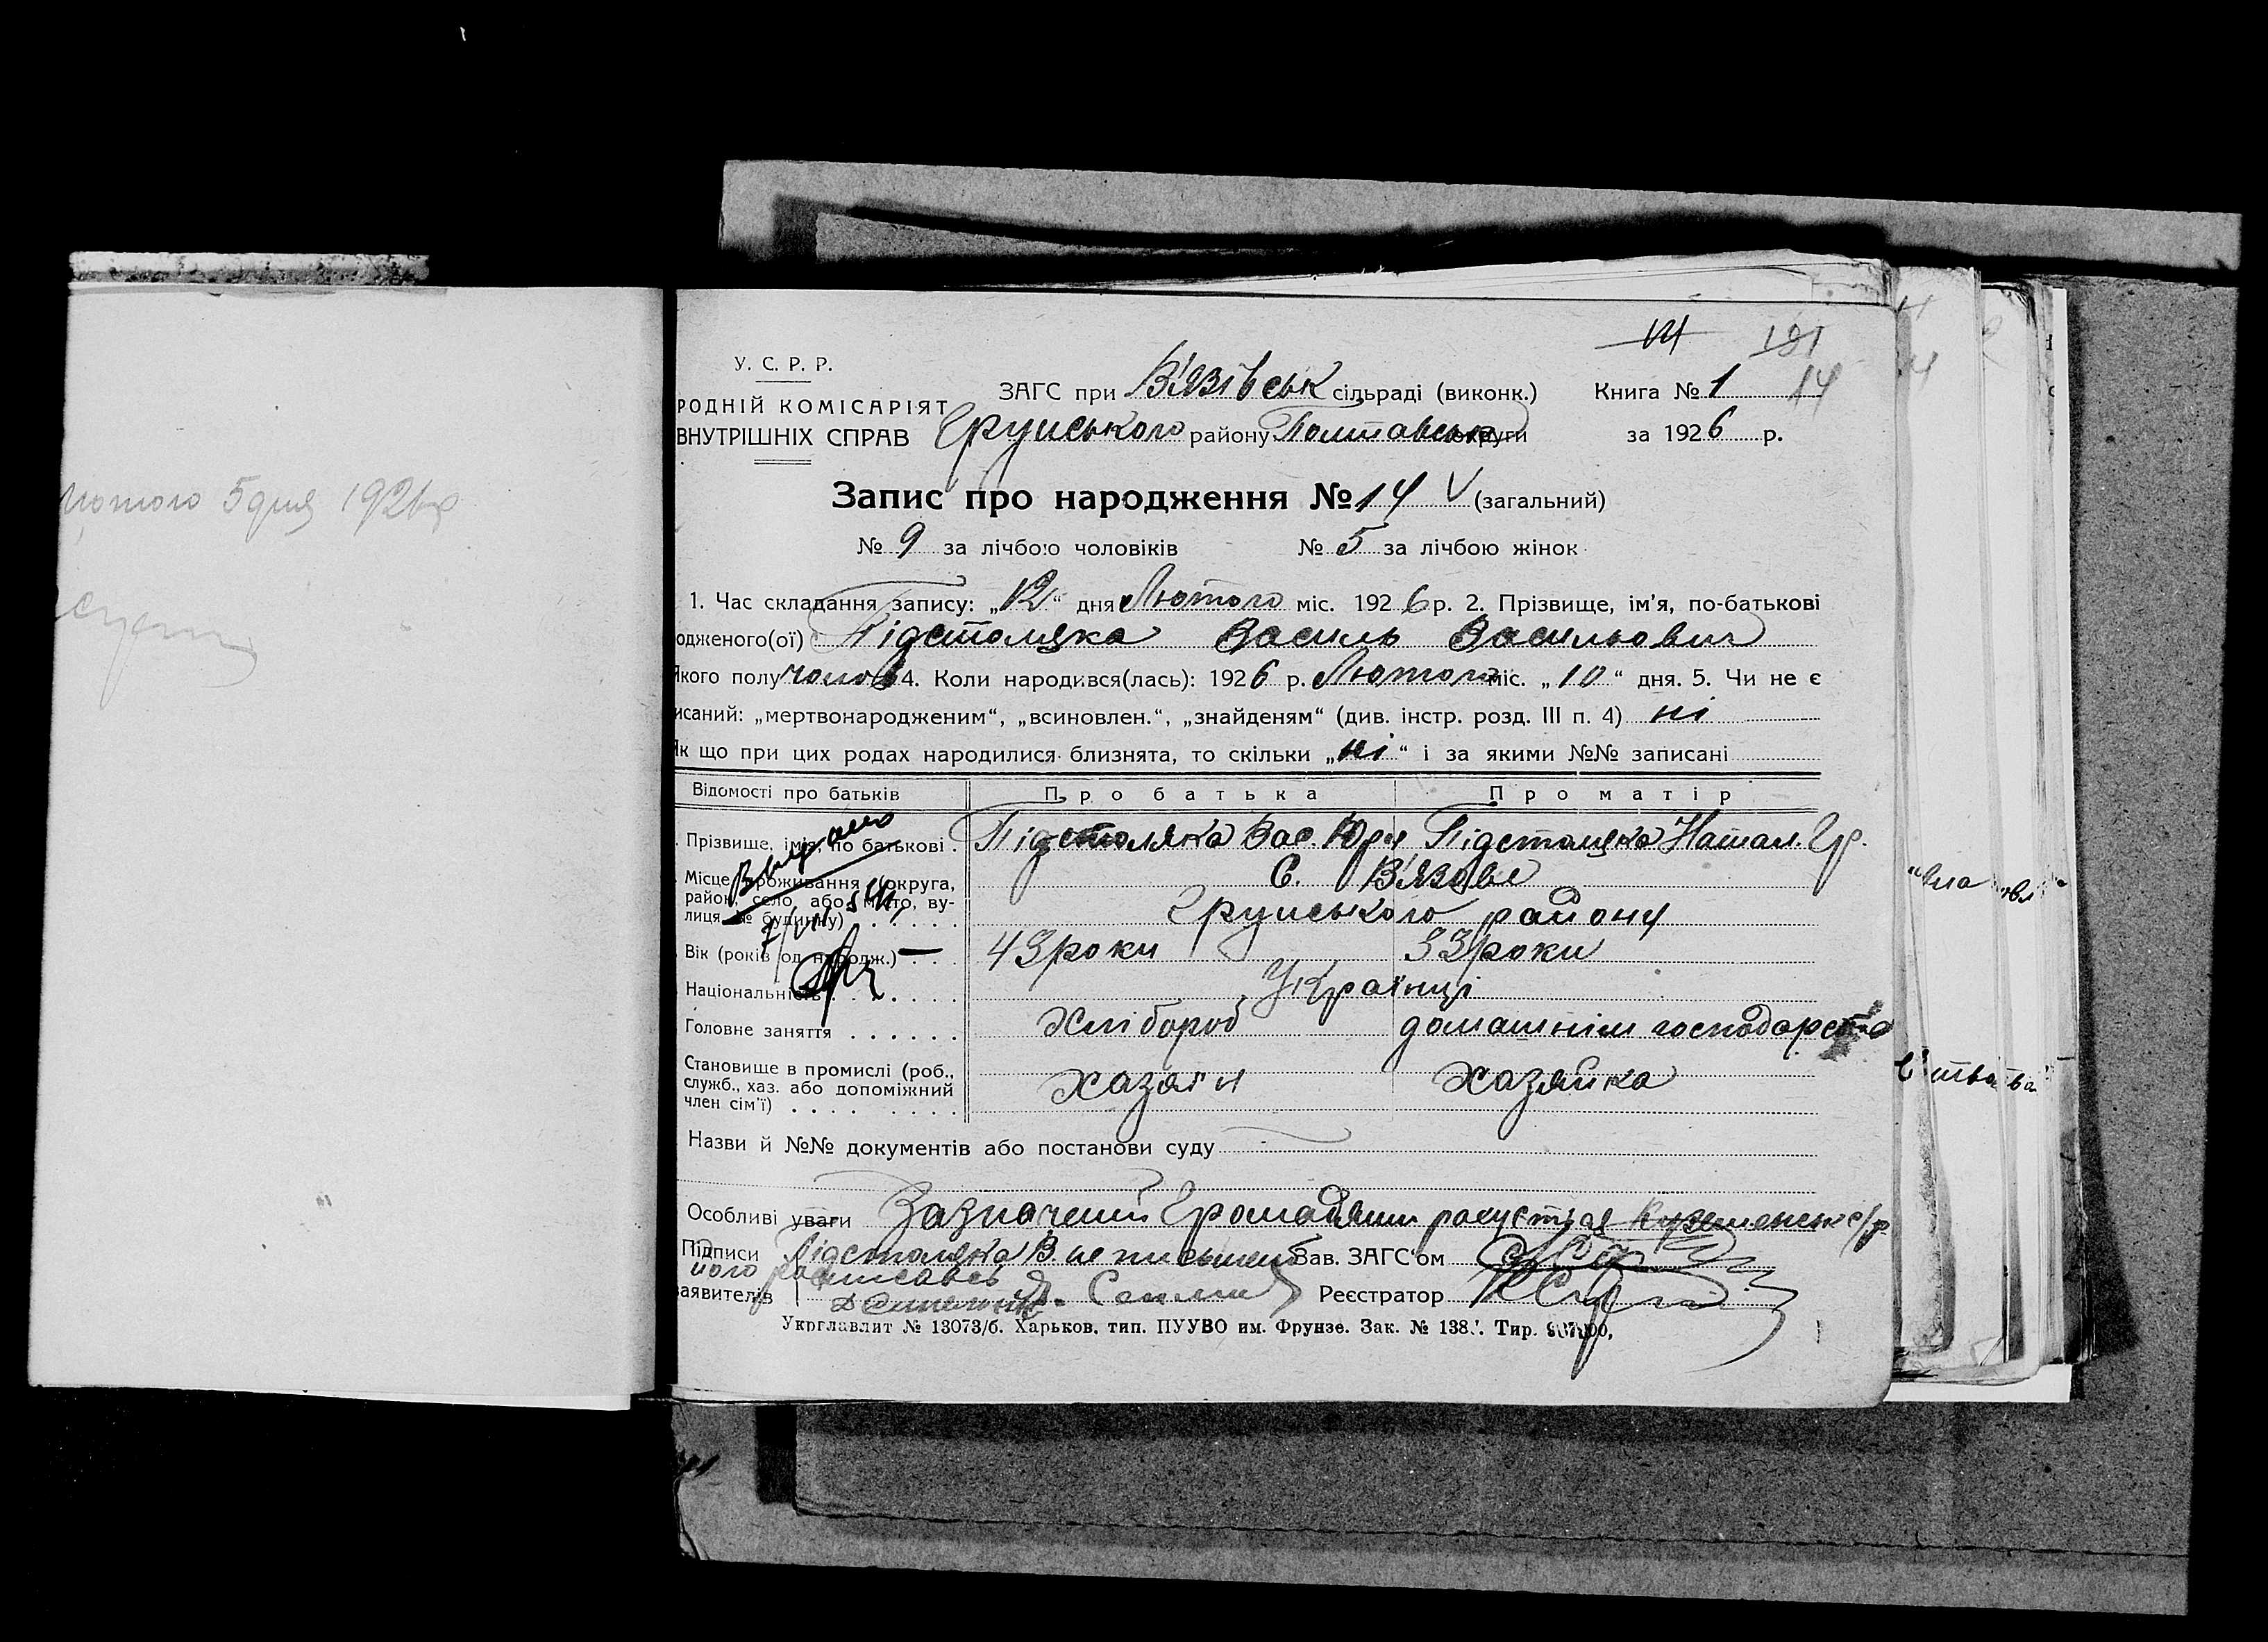 Лютого 5 дня 1926 р
У. С. Р. Р.
РОДНІЙ КОМІСАРІЯТ
ВНУТРІШНІХ СПРАВ
ЗАГС при В'язівськ сільраді (виконк.)
Грунського району Полтавськ округи
Книга № 1
за 1926 р.
181
14
Запис про народження № 14 V (загальний)
№ 9 за лічбою чоловіків № 5 за лічбою жінок
1. Час складання запису: „12“ дня Лютого міс. 1926 р. 2. Прізвище, ім'я, по-батькові
одженого(ої) Підстоляка Василь Васильович
Якого полу чолов 4. Коли народився(лась): 1926 р. Лютого міс. „10“ дня. 5. Чи не є
исаний: „мертвонародженим“, „всиновлен.“, „знайденям“ (див. інстр. розд. III п. 4) ні
Як що при цих родах народилися близнята, то скільки „ні“ і за якими №№ записані
Відомості про батьків Про батька Про матір
Прізвище, імія, по батькові . Підстоляка Вас. Юрн Підстоляка Натал. Гр.
Місце проживання (округа, район, село або місто, вулиця № будинку) . . . . . С. В'язове
Грунського району
Вік (років од народж.) . . . 43 роки 33 роки
Національність . . . . . . Українці
Головне заняття . . . . . . Хлібороб домашнім господарств
Становище в промислі (роб., служб., хаз. або допоміжний член сім'ї) . . . . . . . . Хазяїн Хазяйка
Назви й №№ документів або постанови суду
Особливі уваги Зазначений Громадянин
Підписи Підстоляка В. не письмен Зав. ЗАГС'ом
його росписавсь
заявителів Реєстратор
Укрглавлит № 13073/б. Харьков, тип. ПУУВО им. Фрунзе. Зак. № 138. Тир.